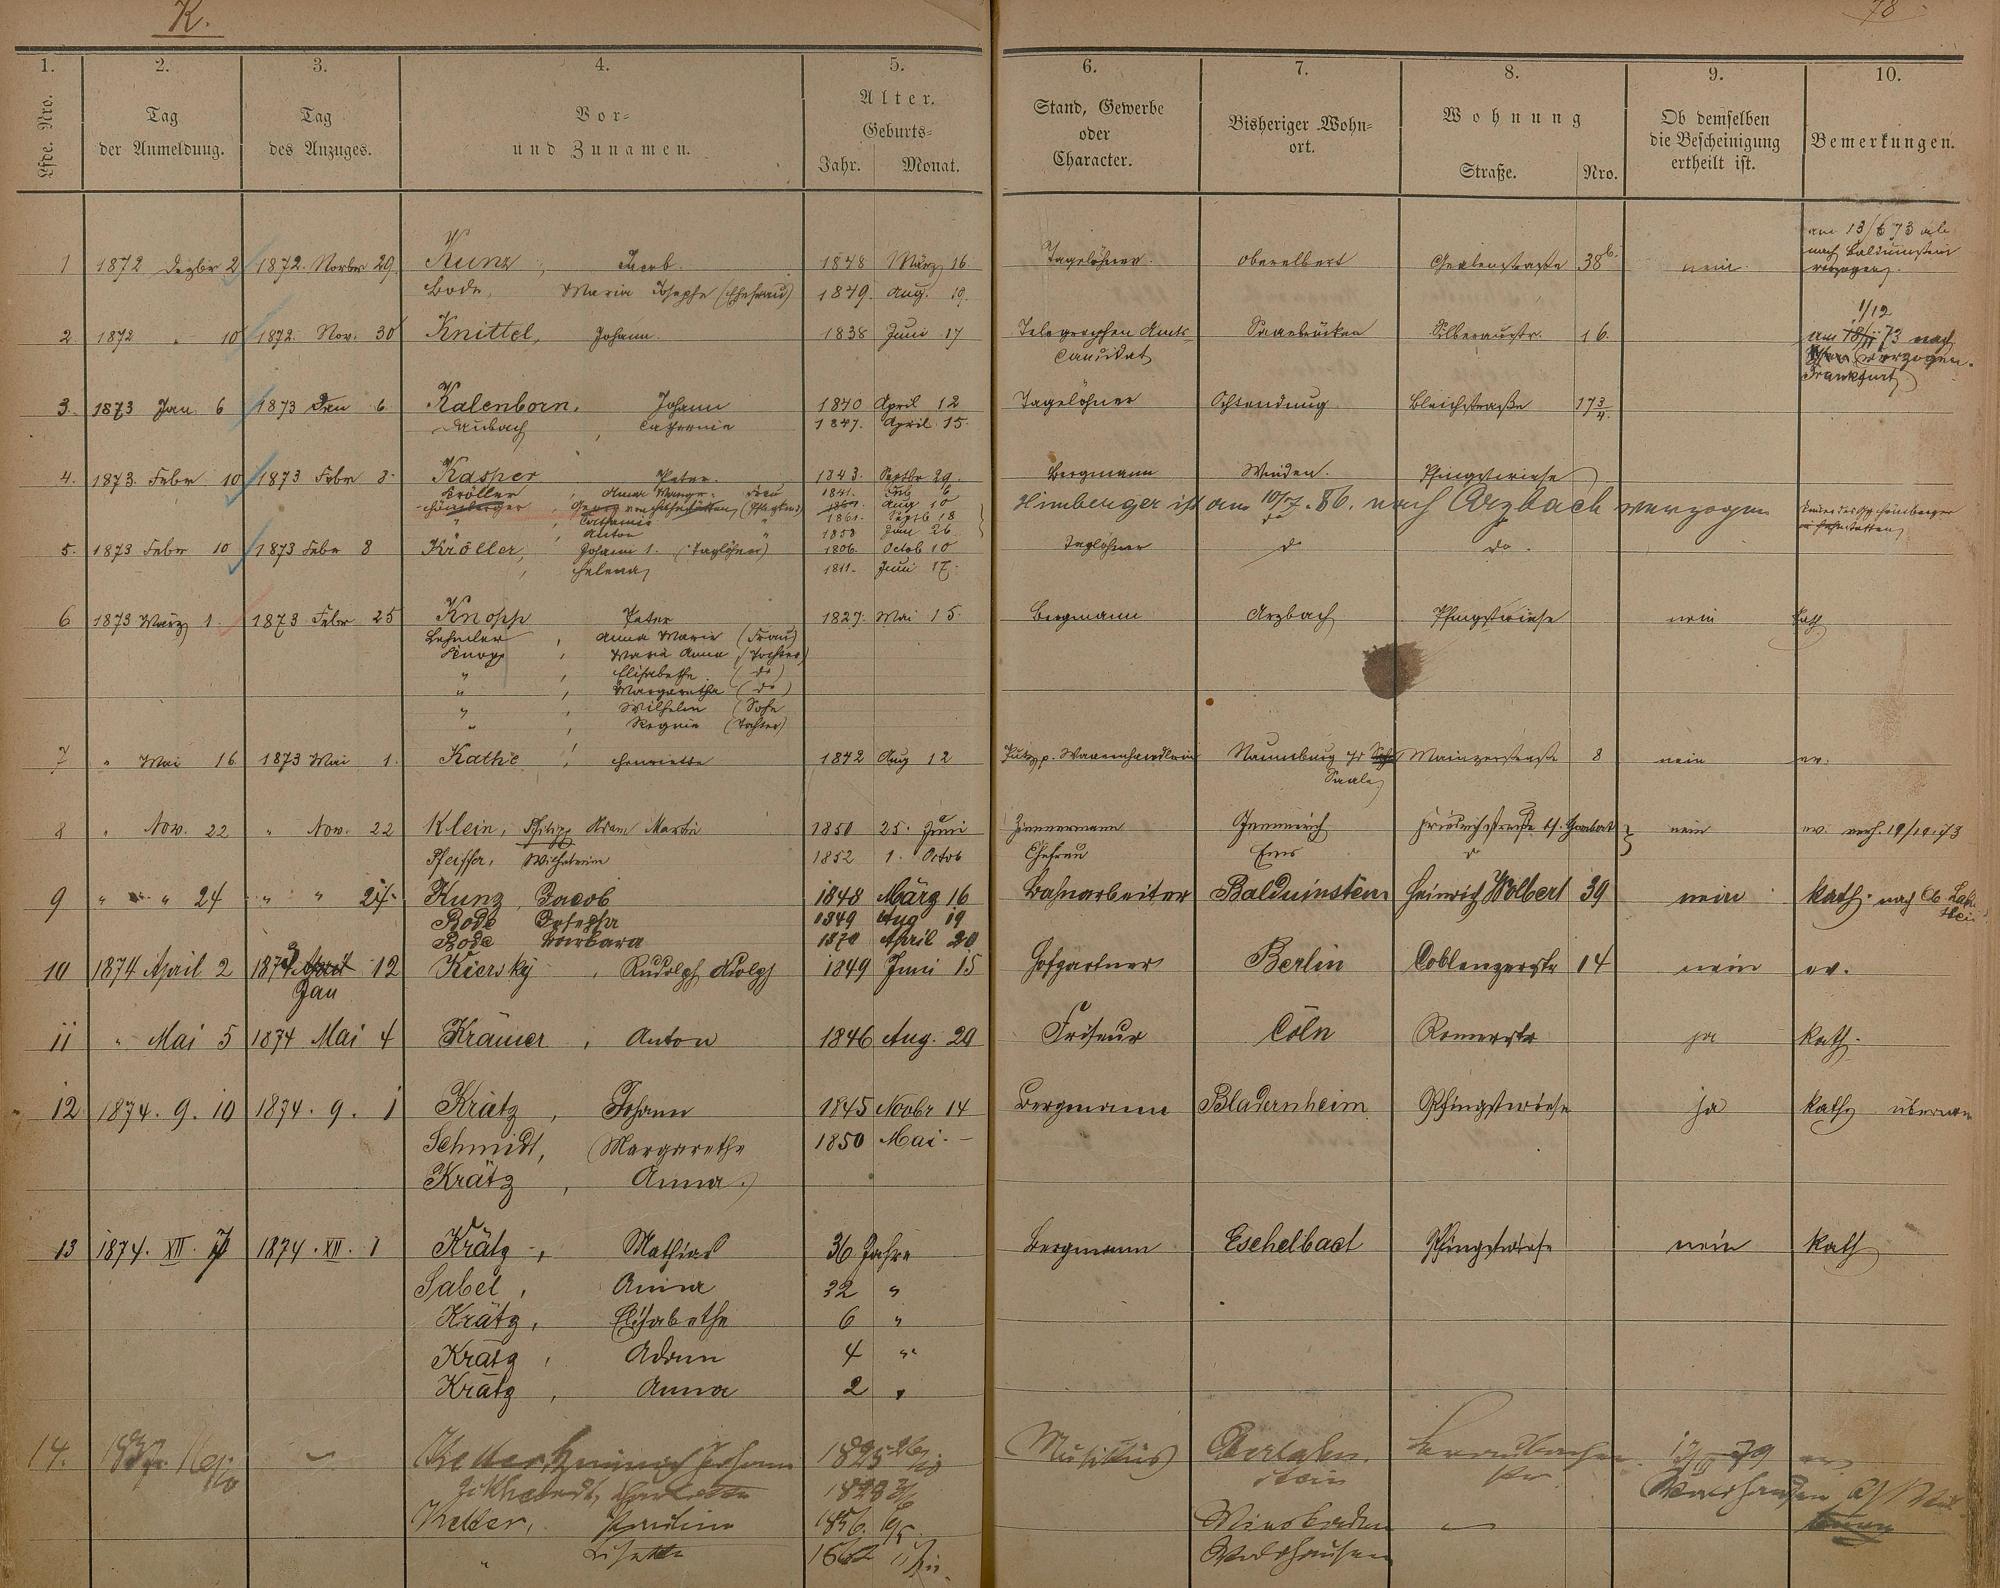 K.
78
1. 2. 3. 4. 5. 6. 7. 8. 9. 10.
Lfde. Nro. Tag der Anmeldung. Tag des Anzuges. Vor- und Zunamen. Alter. Geburts- Jahr. Monat. Stand, Gewerbe oder Character. Bisheriger Wohnort. Wohnung Straße. Nro. Ob demselben die Bescheinigung ertheilt ist. Bemerkungen.
1 1872 Dezbr 2 1872. Novbr 29. Kunz, Jacob. 1848 März 16 Tagelöhner. Oberelbert 38b. nein. am 13/6 73 nach Balduinstein verzogen.
Bode, Maria Josepha (Ehefrau) 1849. Aug. 19.
2 1872 " 10 1872. Nov. 30 Knittel, Johann. 1838 Juni 17 Telegraphen Amts Candidat Saarbrücken Silberaustr. 16. 1/12 am 18/11 73 nach verzogen. Frankfurt
3. 1873 Jan. 6 1873 Jan 6 Kalenborn, Johann 1840 April 12 Tagelöhner Ochtendung Bleichstraße 17 3/4.
Daubach, Catharina 1847. April 15.
4. 1873. Febr 10 1873 Febr 8. Kasper Peter. 1843. Septbr 29. Bergmann Winden. Pfingstwiese
Kröller, Anna Margr. Frau 1841. Feb 6
Himberger, Georg von Hahnstätten (Pflegkind) Aug 10 Himberger ist am 10/7. 86. nach Arzbach verzogen
" , Catharina " 1861. Septb 18
" , Anton " 1858 Juni 26.
5. 1873 Febr 10 1873 Febr 8 Kröller, Johann 1. (Taglöhner) 1806. Octob 10 Taglöhner do do.
, Helena 1811. Juni 17.
6 1873 März 1. 1873 Febr 25 Knopp Peter 1827. Mai 15. Bergmann Arzbach Pfingstwiese nein kath
, Anna Maria (Frau)
Knopp, Maria Anna (Tochter)
" , Elisabetha (do)
" , Margaretha (do)
" , Wilhelm (Sohn
" , Regina (Tochter)
7 " Mai 16 1873 Mai 1. Kathe, Henriette 1842 Aug 12 Putz p. Waarenhändlerin Naumburg a/d Saale Mainzerstraße 8 nein ev.
8 " Nov. 22 " Nov. 22 Klein, Philipp Adam Martin 1850 25. Juni Zimmermann Gemmerich Friedrichstraße nein ev. verh. 19/10. 73
Pfeiffer, Wilhelmine 1852 1. Octob Ehefrau Ems do
9 " " 24 " " 24. Kunz, Jacob 1848 März 16 Bahnarbeiter Balduinstein Heinrich Wolbert 39 nein kath. nach Ob. Lahnstein
Bode Josepha 1849 Aug 19
Bode Barbara 1870 April 20
10 1874 April 2 1873 April 12 Jan Kiersky, Rudolph Adolph 1849 Juni 15 Hofgärtner Berlin Coblenzerstr 14 nein ev.
11 " Mai 5 1874 Mai 4 Krämer, Anton 1846 Aug. 20 Friseur Cöln Römerstr ja kath.
12 1874. 9. 10 1874. 9. 1 Krätz, Johann 1845 Novbr 14 Bergmann Bladernheim Pfingstwiese ja kath
Schmidt, Margarethe 1850 Mai. -
Krätz, Anna
13 1874. XII. 7 1874. XII. 1 Krätz, Mathias 36 Jahre Bergmann Eschelbach Pfingstwiese nein kath
Sabel, Anna 32 "
Krätz, Elisabethe 6 "
Krätz, Adam 4 "
Krätz, Anna 2 "
14. Keller, Heinrich Johann 1825 26/10 Musikus Oberlahnstein Braubacher str ev
1828
Keller, Pauline 1856. Wiesbaden
" Lisette